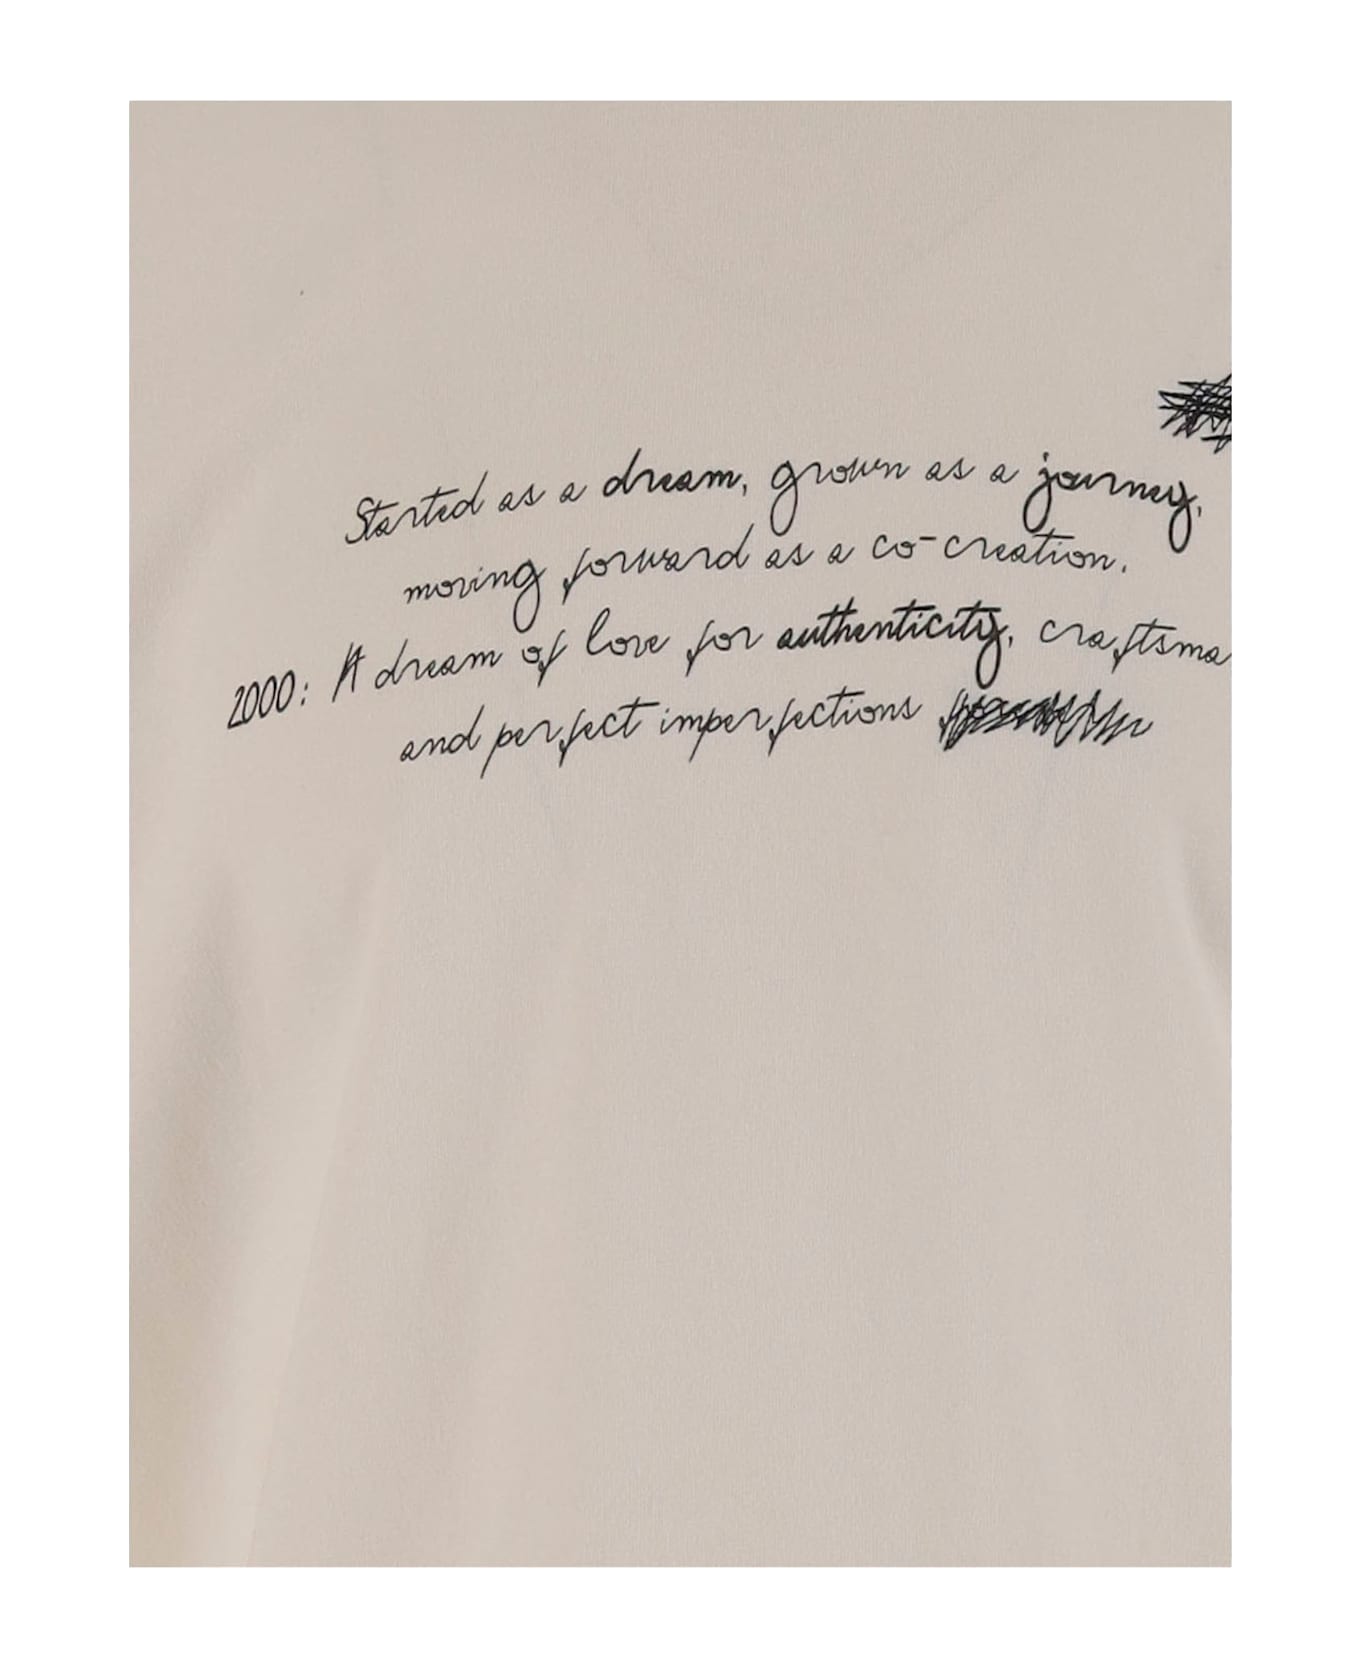 Started as a dream, grown as a journey,
moving forward as a co-creation.
2000: A dream of love for authenticity, craftsma
and perfect imperfections